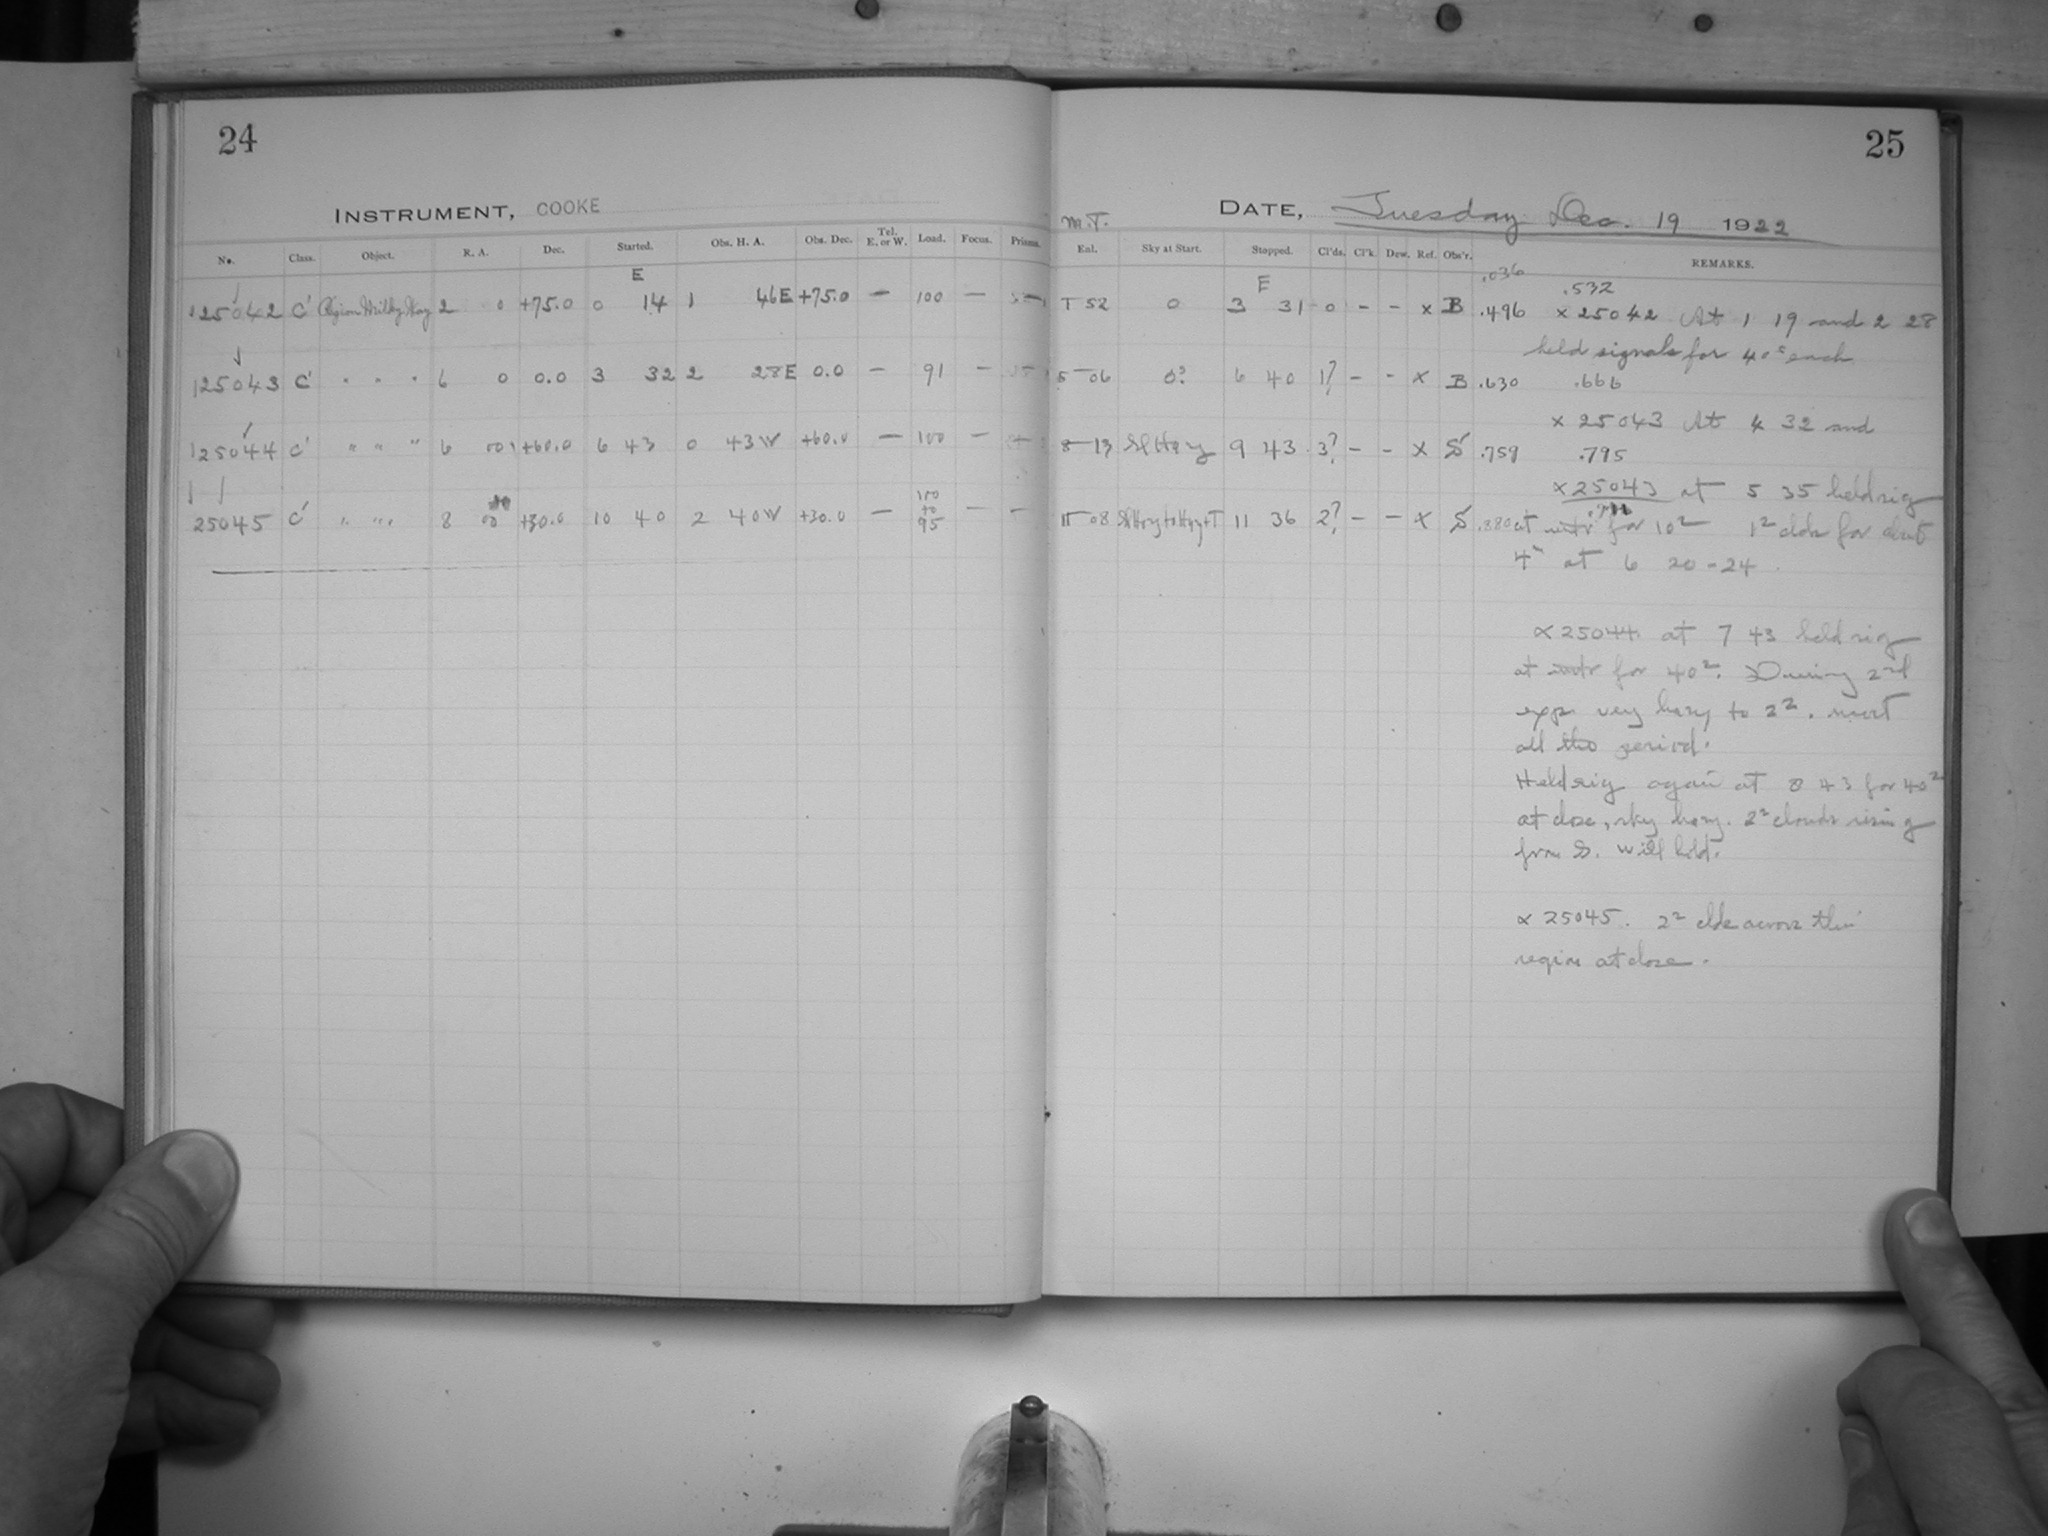 24
INSTRUMENT, COOKE
No. Class. Object. R. A. Dec. Started. Obs. H. A. Obs. Dec. Tel. E. or W. Load. Focus. Prisms.
E
25042 C' Region Milky Way 2 0 +75.0 0 14 1 46E +75.0 — 100 —
25043 C' " " " 6 0 0.0 3 32 2 28E 0.0 — 91 —
25044 C' " " " 6 00 +60.0 6 43 0 43W +60.0 — 100 —
25045 C' " " " 8 00 +30.0 10 40 2 40W +30.0 — 95 — —
25
DATE, Tuesday Dec. 19 1922
M.T.
Enl. Sky at Start. Stopped. Cl'ds. Cl'k. Dew. Ref. Obs'r. REMARKS.
E .036 .532
T 52 0 3 31 0 - - x B .496 x 25042 At 1 19 and 2 28
held signals for 40s each
5 06 0? 6 40 1? - - x B .630 .666
x 25043 At 4 32 and
8 13 Sl Hazy 9 43 3? - - x S .759 .795
x 25043 at 5 35 held sig
11 08 11 36 2? - - x S .880 at for 10 clds for about
4 at 6 20-24
x 25044. at 7 43 held sig
at for 40s. During 2nd
exp. very hazy to 22. most
all the period.
Held sig again at 8 43 for 40s
at close, sky hazy. clouds rising
from S. will hold.
x 25045. clds across this
region at close.